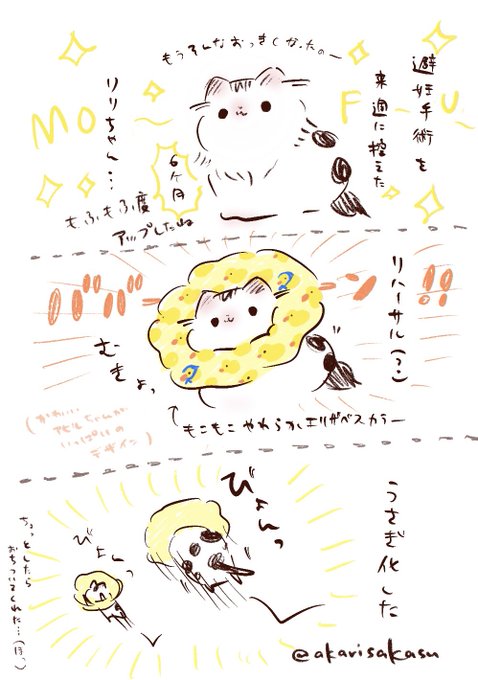 避妊手術を
来週に控えた
もうそんなおっきしかったのー
MO
F-U
リリちゃん…
6ヶ月
もふもふ度
アップしたね
リハーサル(?)
ババーーン!!
むきょっ
もこもこやわらかエリザベスカラー
(かわいい
アヒルちゃんが
いっぱいの
デザイン)
うさぎ化した
びょんっ
びょんっ
ちょっとしたら
おちついてくれた…(ほっ)
@akarisakasu